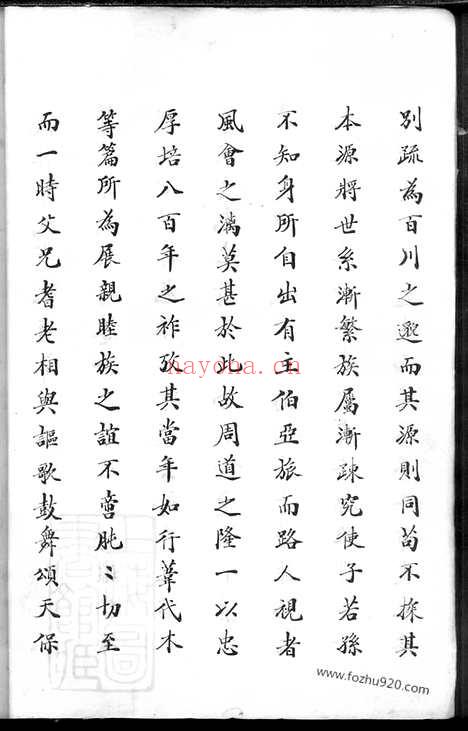 別疏為百川之遡而其源則同苟不探其
本源將世系漸繁族屬漸疎究使子若孫
不知身所自出有主伯亞旅而路人視者
風會之漓莫甚於此故周道之隆一以忠
厚培八百年之祚攷其當年如行葦代木
等篇所為展親睦族之誼不啻肫〻切至
而一時父兄耆老相與謳歌鼓舞頌天保
nayona.cn
www.fozhu920.com